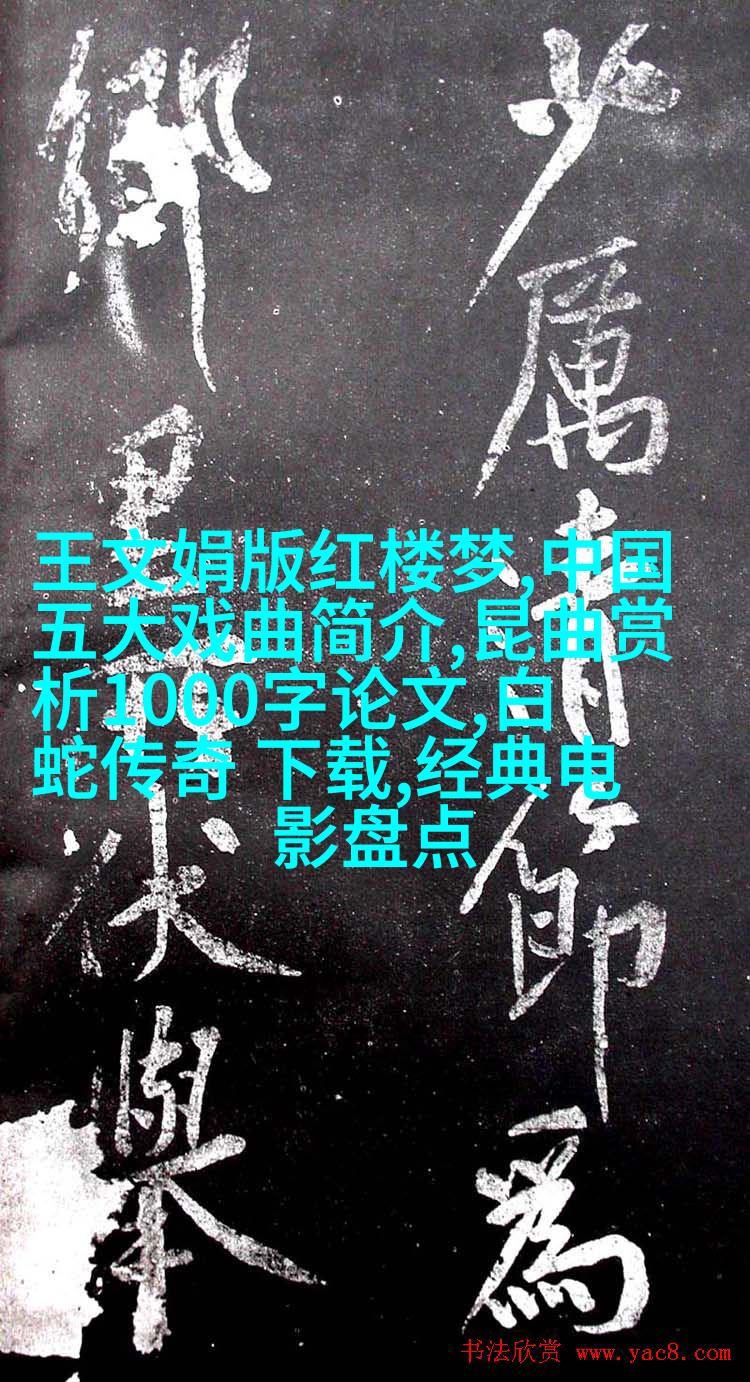 少厲清節為
鄉里伏舉
王文娟版红楼梦,中国
五大戏曲简介,昆曲赏
析1000字论文,白
蛇传奇 下载,经典电
影盘点
书法欣赏 www.yac8.com